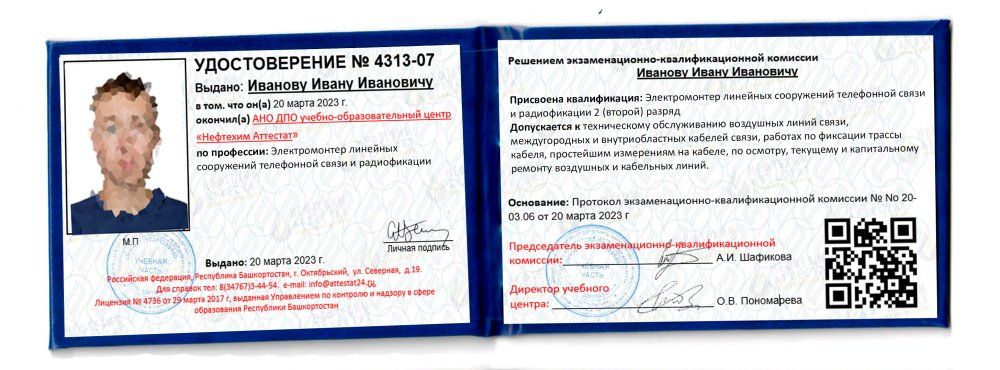 УДОСТОВЕРЕНИЕ № 4313-07
Выдано: Иванову Ивану Ивановичу
в том. что он(а) 20 марта 2023 г.
окончил(а) АНО ДПО учебно-образовательный центр
«Нефтехим Аттестат»
по профессии: Электромонтер линейных
сооружений телефонной связи и радиофикации
М.П
Личная подпись
УЧЕБНАЯ
ЧАСТЬ
Выдано: 20 марта 2023 г.
Российская федерация, Республика Башкортостан, г. Октябрьский, ул. Северная, д.19.
Для справок тел: 8(34767)3-44-54. e-mail: info@attestat24.ru,
Лицензия № 4736 от 29 марта 2017 г, выданная Управлением по контролю и надзору в сфере
образования Республики Башкортостан
Решением экзаменационно-квалификационной комиссии
Иванову Ивану Ивановичу
Присвоена квалификация: Электромонтер линейных сооружений телефонной связи
и радиофикации 2 (второй) разряд
Допускается к техническому обслуживанию воздушных линий связи,
междугородных и внутриобластных кабелей связи, работах по фиксации трассы
кабеля, простейшим измерениям на кабеле, по осмотру, текущему и капитальному
ремонту воздушных и кабельных линий.
Основание: Протокол экзаменационно-квалификационной комиссии № No 20-
03.06 от 20 марта 2023 г
Председатель экзаменационно-квалификационной
комиссии: А.И. Шафикова
УЧЕБНАЯ
ЧАСТЬ
Директор учебного
центра: О.В. Пономарева